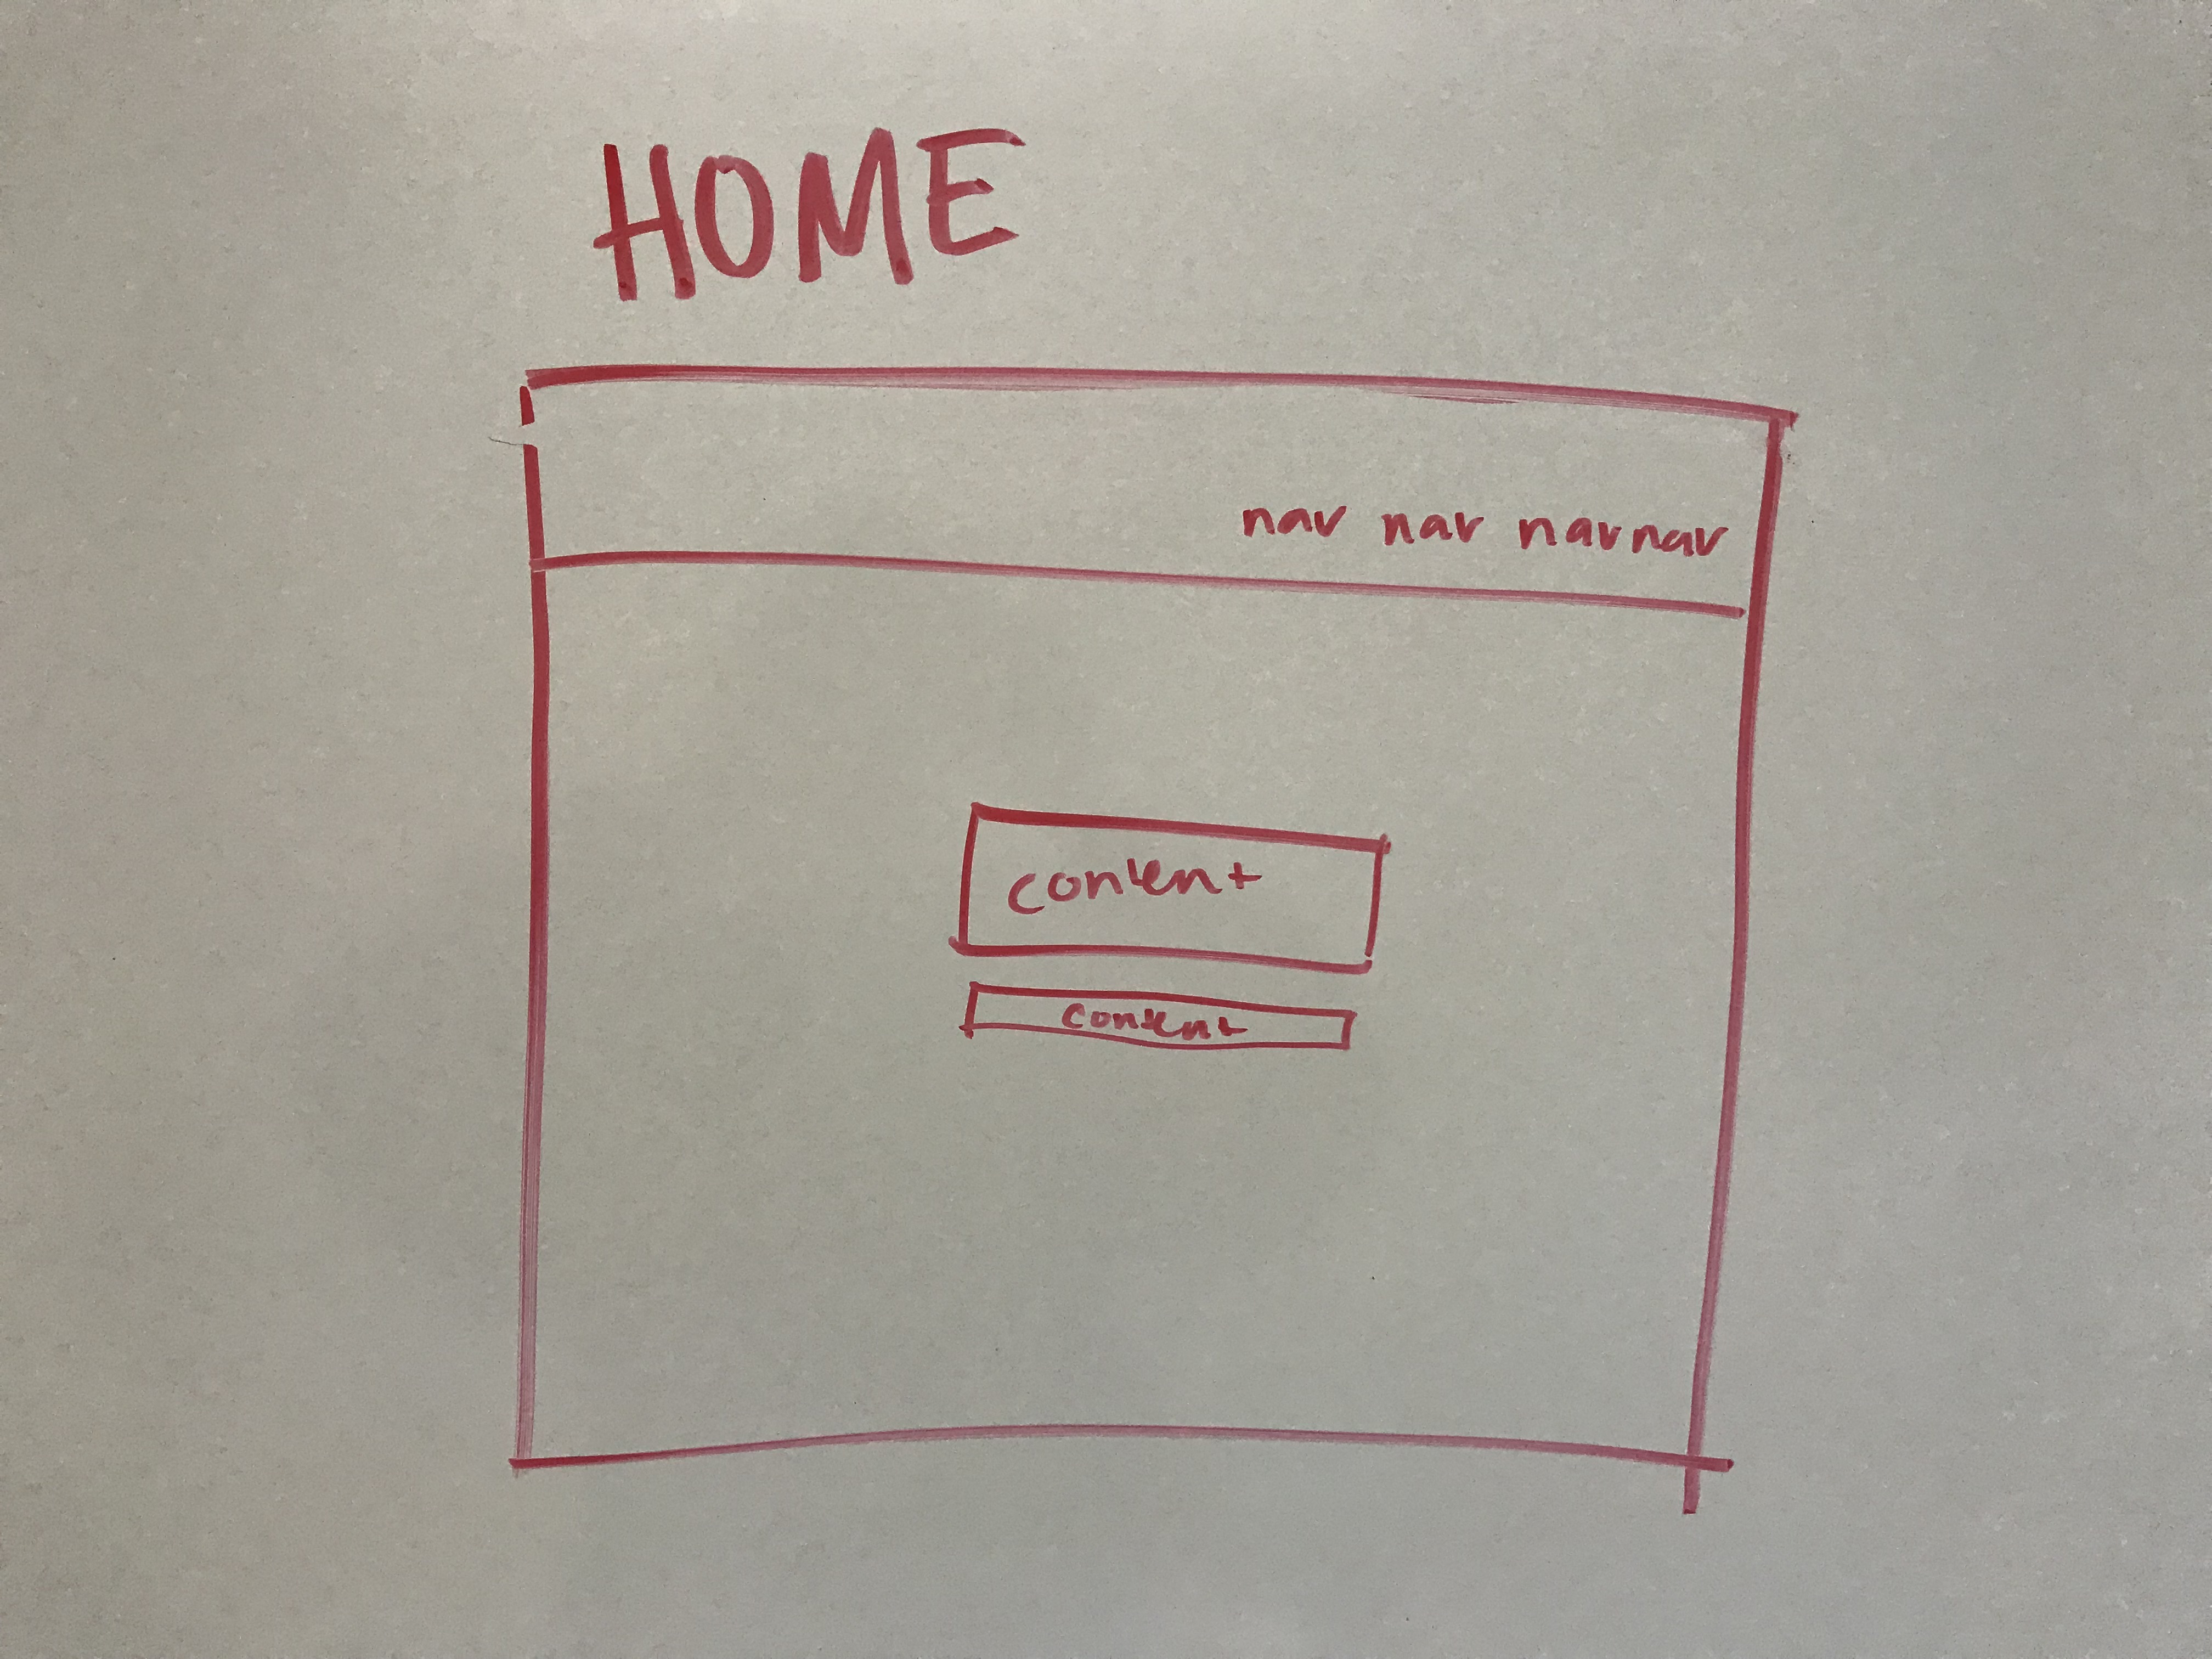 HOME
nav nav nav nav
content
content